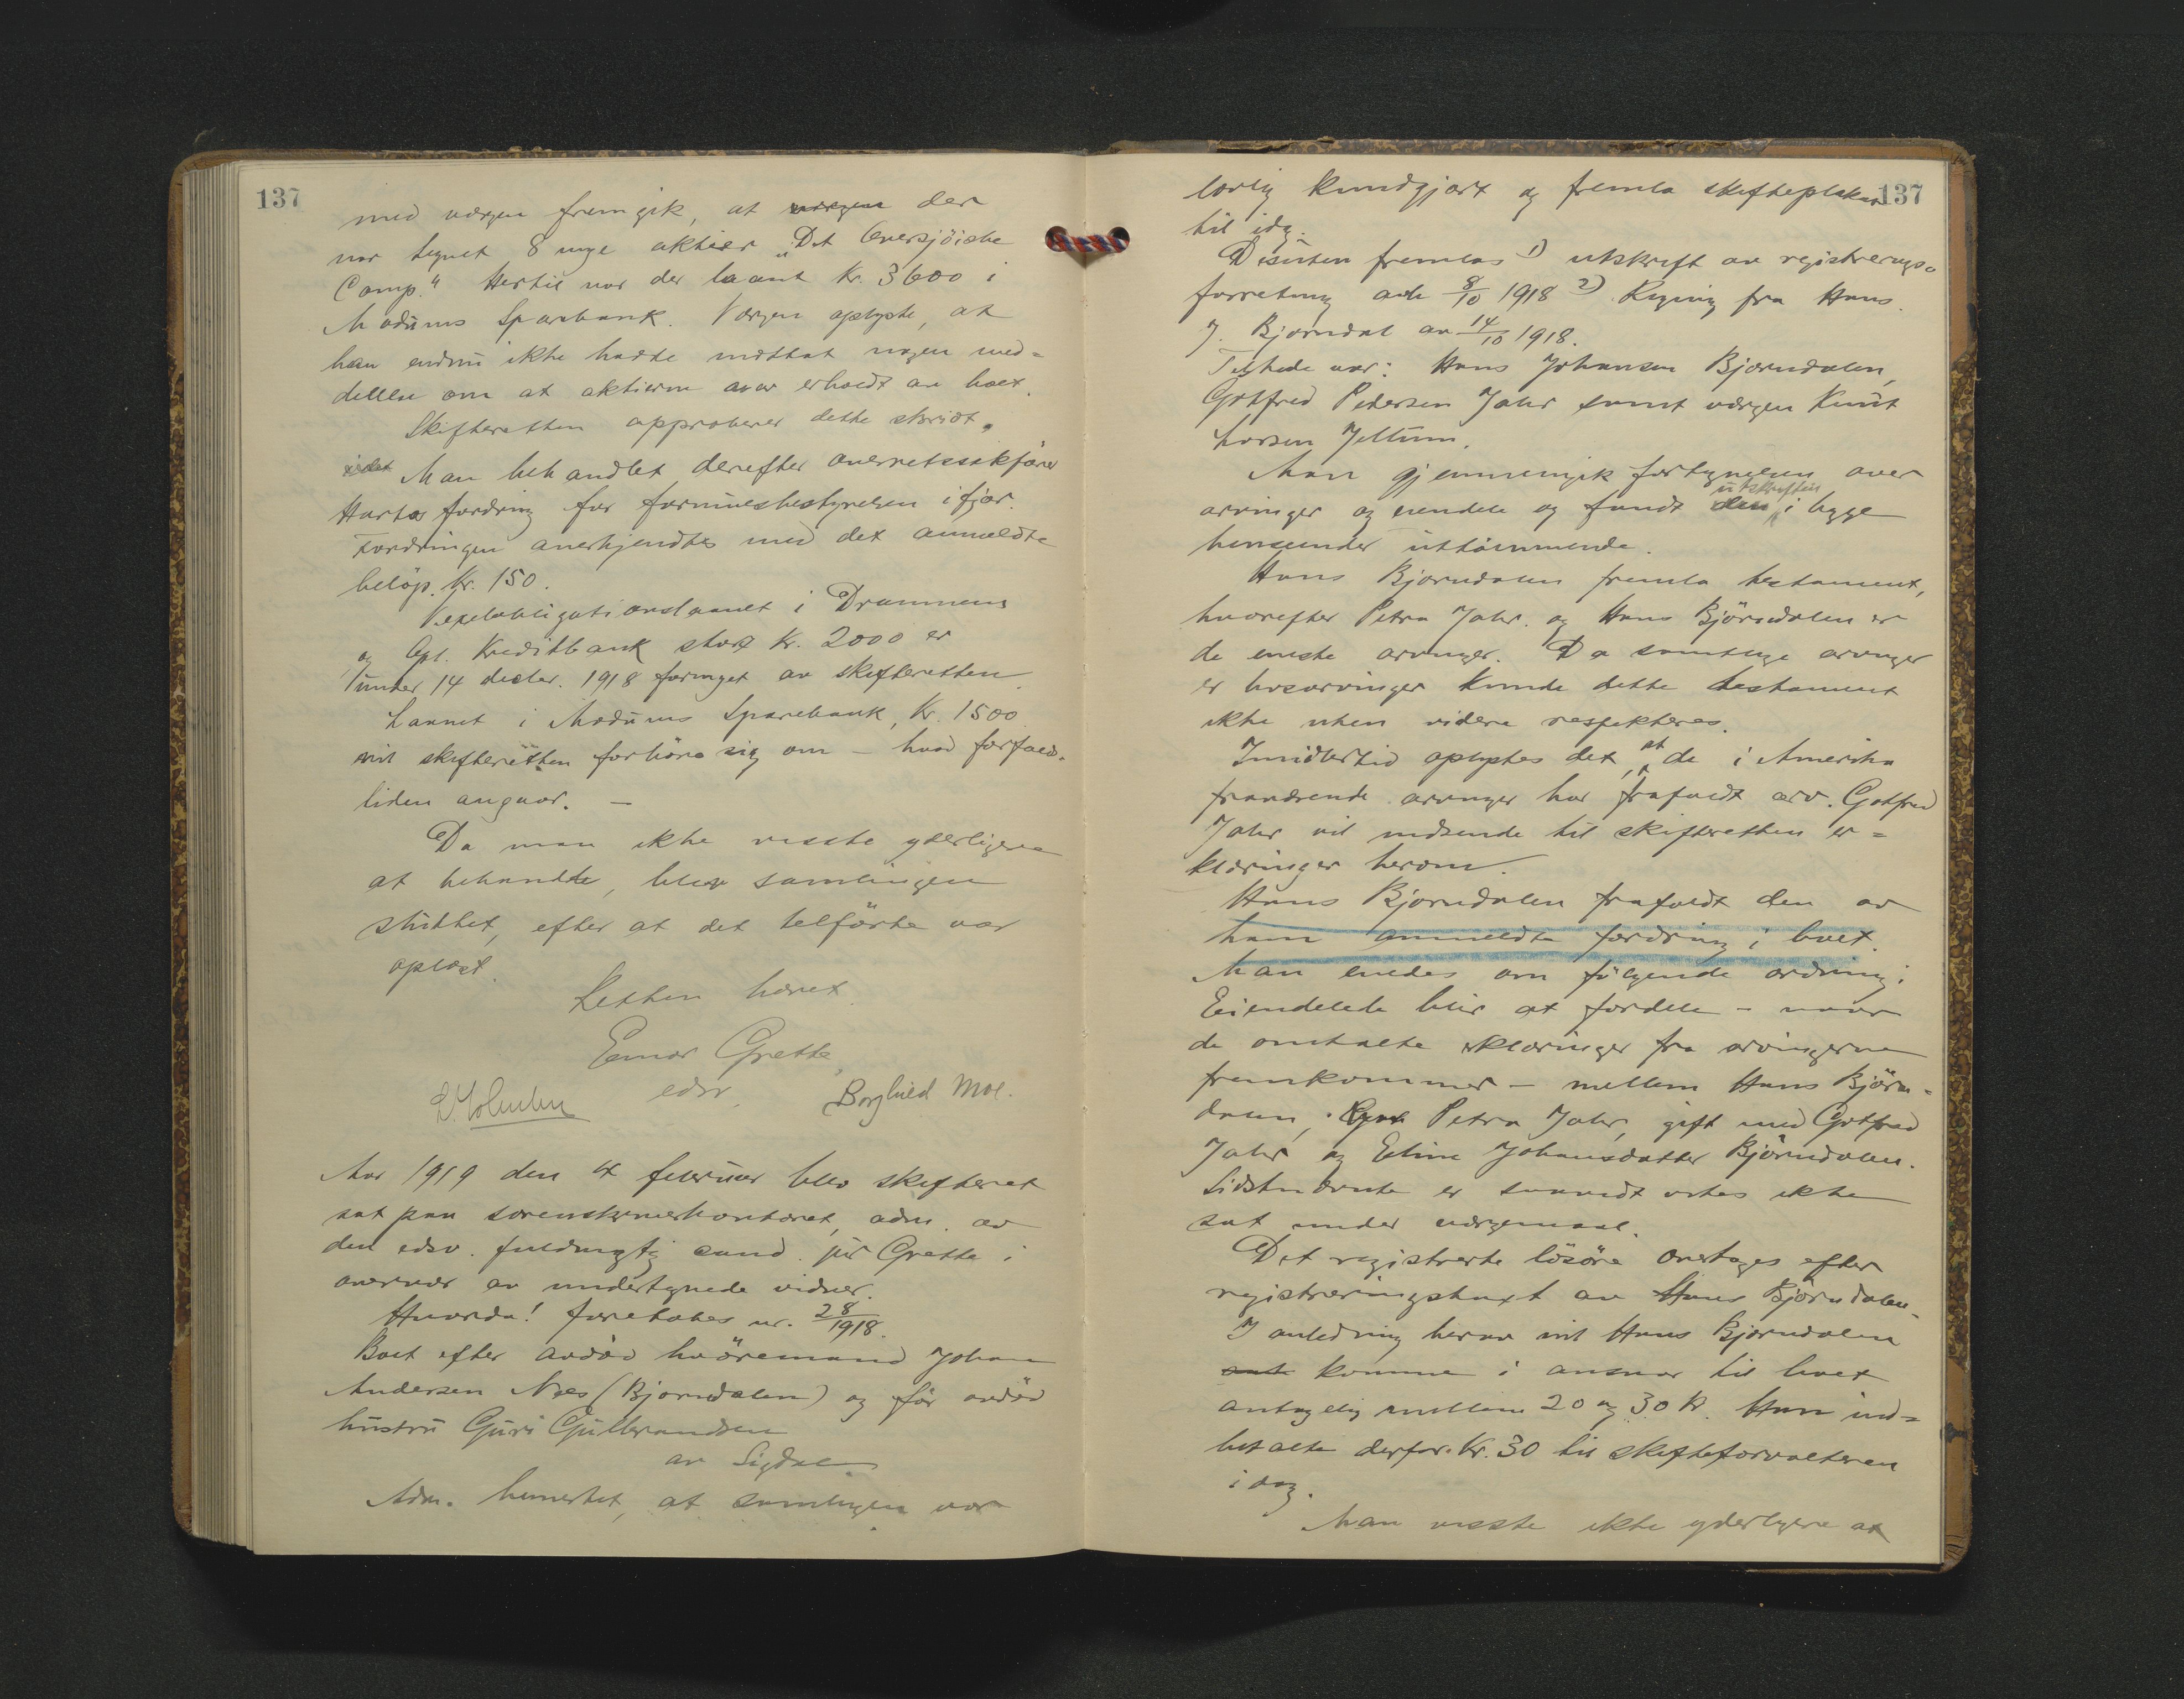 137
med værgen fremgik, at værgen der
var tegnet 8 nye aktier „Det Oversjöiske
Comp." Hertil var der laant Kr. 3600 i
Modums Sparebank. Værgen oplyste, at
han endnu ikke hadde mottat nogen med=
delelse om at aktierne var erholdt av boet.
Skifteretten approberer dette skridt.
Man behandlet derefter overretssakfører
fordring for formuesbestyrelsen ifjor.
Fordringen anerkjendtes med det anmeldte
beløp Kr. 150.
Vexelobligationslaanet i Drammens
og Opl. Kreditbank stort Kr. 2000 er
under 14 decbr. 1918 fornyet av skifteretten
Laanet i Modums Sparebank, Kr. 1500
vil skifteretten forhöre sig om – hvad forfalds-
tiden angaar. –
Da man ikke visste yderligere
at behandle, blev samlingen
sluttet, efter at det tilförte var
oplæst.
Retten hævet
Einar Grette
edsv.
Borghild Moe.
Aar 1919 den 4 februar blev skifteret
sat paa sorenskriverkontoret, adm. av
den edsv. fuldmægtig cand. jur Grette i
overvær av undertegnede vidner.
Hvorda! foretokes nr. 28/1918.
Boet efter avdöd Johan
Andersen Næs (Bjørndalen) og før avdöd
hustru Guri Gulbrandsen
av Sigdal
Adm. bemerket, at samlingen var
137
lovlig kundgjort og fremla skifteplakat
til idag.
Desuten fremlas 1) utskrift av registrerings-
forretning avh. 8/10 1918 2) Regning fra Hans
J. Bjørndal av 14/10 1918.
Tilstede var: Hans Johansen Bjørndalen,
Gotfred Petersen Jahr samt værgen Knut
Larsen Jellum.
Man gjennemgik fortegnelsen over
arvinger og eiendele og fandt den utskriften i begge
henseender uttömmende.
Hans Bjørndalen fremla testament,
hvorefter Petra Jahr og Hans Björndalen er
de eneste arvinger. Da samtlige arvinger
er livsarvinger kunde dette testament
ikke uten videre respekteres.
Imidlertid oplystes det, at de i Amerika
fraværende arvinger har frafaldt arv. Gotfred
Jahr vil indsende til skifteretten er=
klæringer herom.
Hans Bjørndalen frafaldt den av
ham anmeldte fordring i boet.
Man enedes om fölgende ordning:
Eiendelede blir at fordele – naar
de omtalte erklæringer fra arvingerne
fremkommer – mellem Hans Björn=
dalen, Petra Jahr, gift med Gotfred
Jahr og Eline Johansdatter Björndalen.
Sidstnævnte er saavidt vites ikke
sat under værgemaal.
Det registrerte lösöre overtages efter
registreringstaxt av Hans Björndalen.
I anledning herav vil Hans Bjørndalen
komme i ansvar til boet
antagelig mellem 20 og 30 kr. Han ind=
betalte derfor Kr. 30 til skifteforvalteren
idag.
Man visste ikke yderligere at